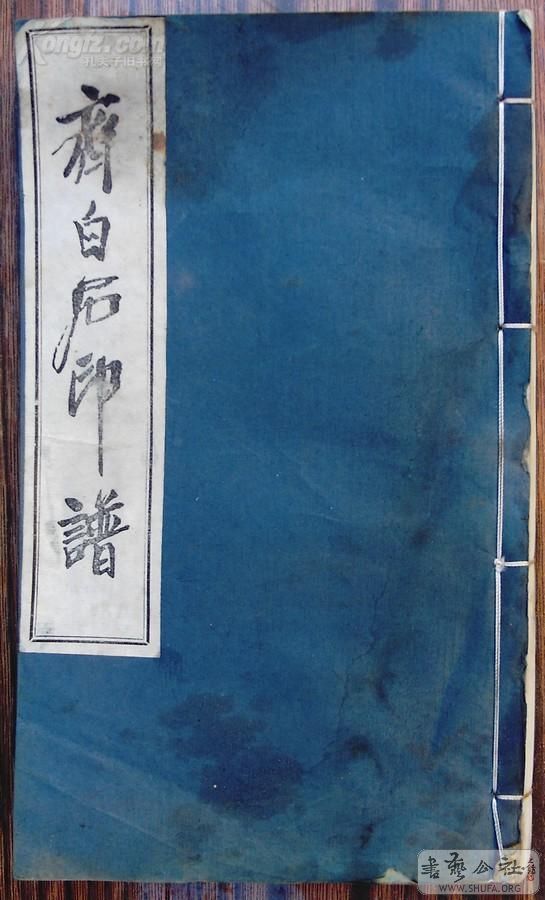 Kongfz.com
孔夫子旧书网
齊白石印譜
書藝公社
WWW.SHUFA.ORG